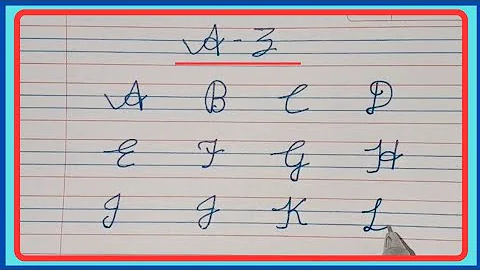 A-Z
A B C D
E F G H
I J K L